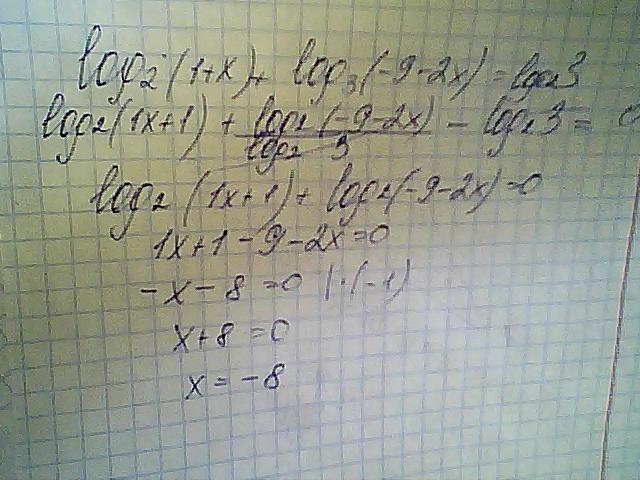 log₂(1+x) + log₃(-9-2x) = log₂3
log₂(1x+1) + log₂(-9-2x)/log₂ 3 - log₂3 = 0
log₂ (1x+1) + log₂(-9-2x) = 0
1x+1-9-2x=0
-x-8=0 |·(-1)
x+8=0
x=-8